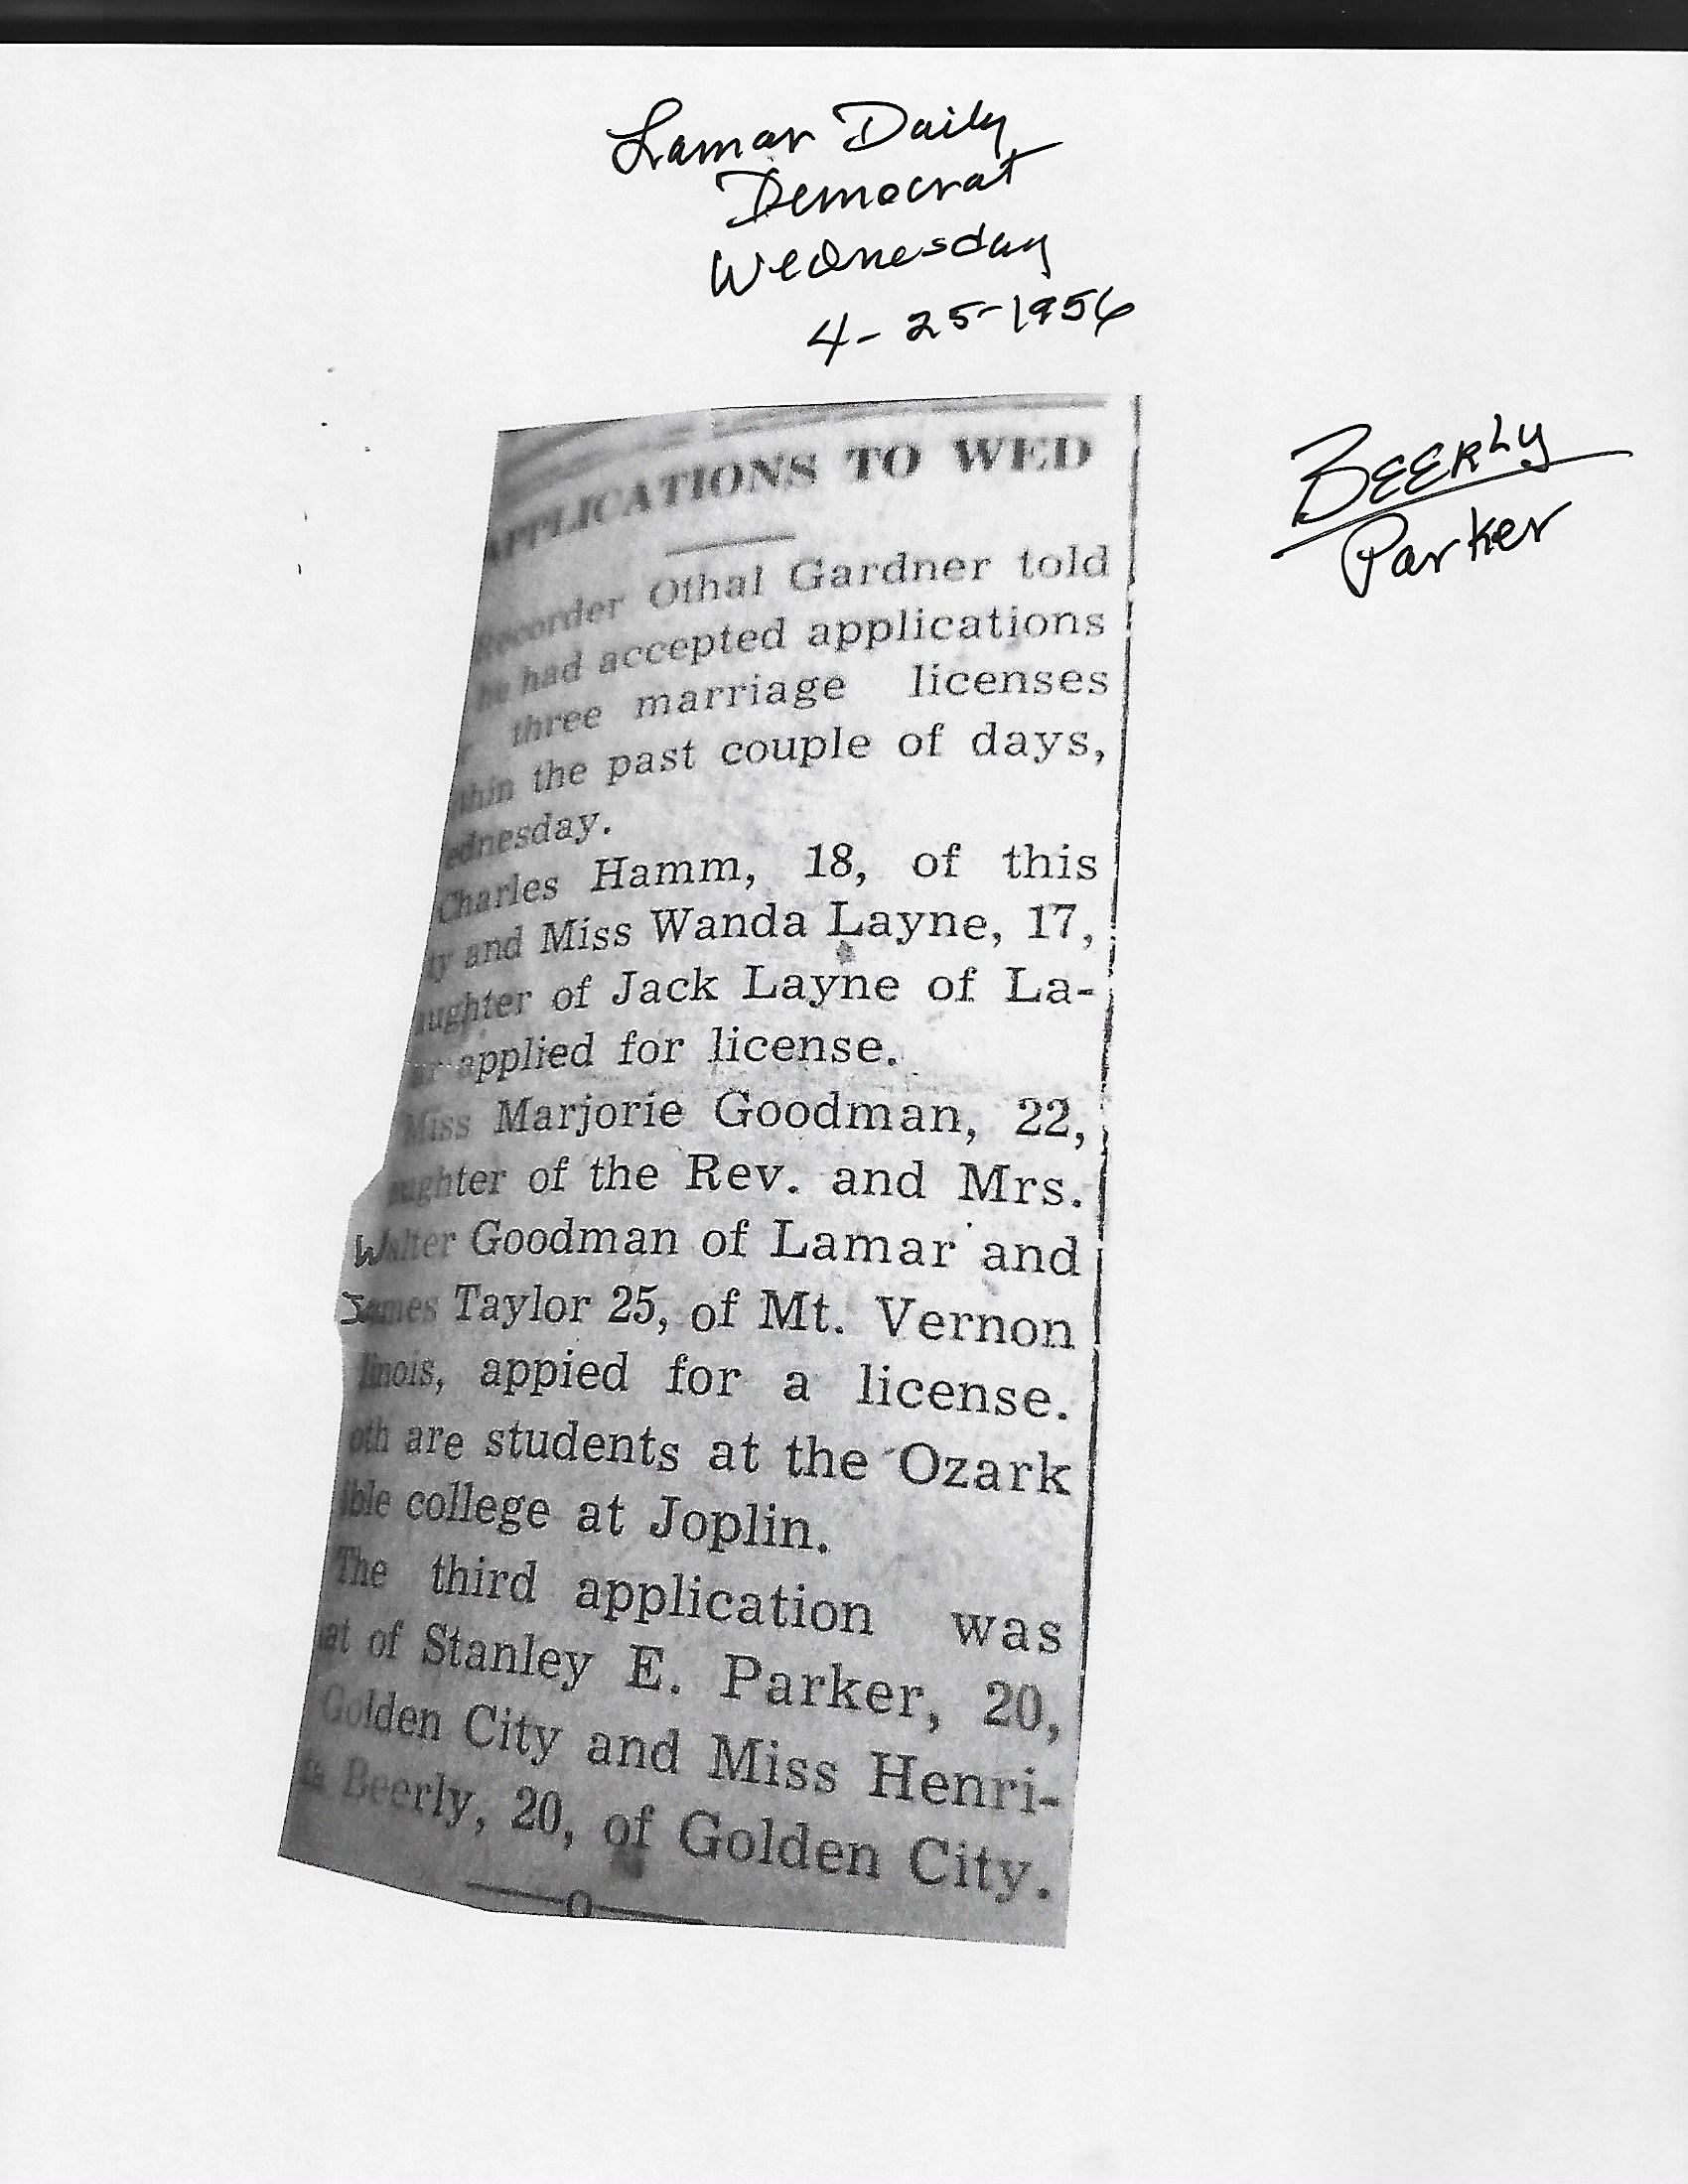 Lamar Daily
Democrat
Wednesday
4-25-1956
BEERLY
Parker
APPLICATIONS TO WED
Recorder Othal Gardner told
he had accepted applications
three marriage licenses
thin the past couple of days,
ednesday.
Charles Hamm, 18, of this
ty and Miss Wanda Layne, 17,
aughter of Jack Layne of La-
ar applied for license.
Miss Marjorie Goodman, 22,
aughter of the Rev. and Mrs.
Walter Goodman of Lamar and
James Taylor 25, of Mt. Vernon
linois, appied for a license.
oth are students at the Ozark
ible college at Joplin.
The third application was
at of Stanley E. Parker, 20,
Golden City and Miss Henri-
ta Beerly, 20, of Golden City.
—o—